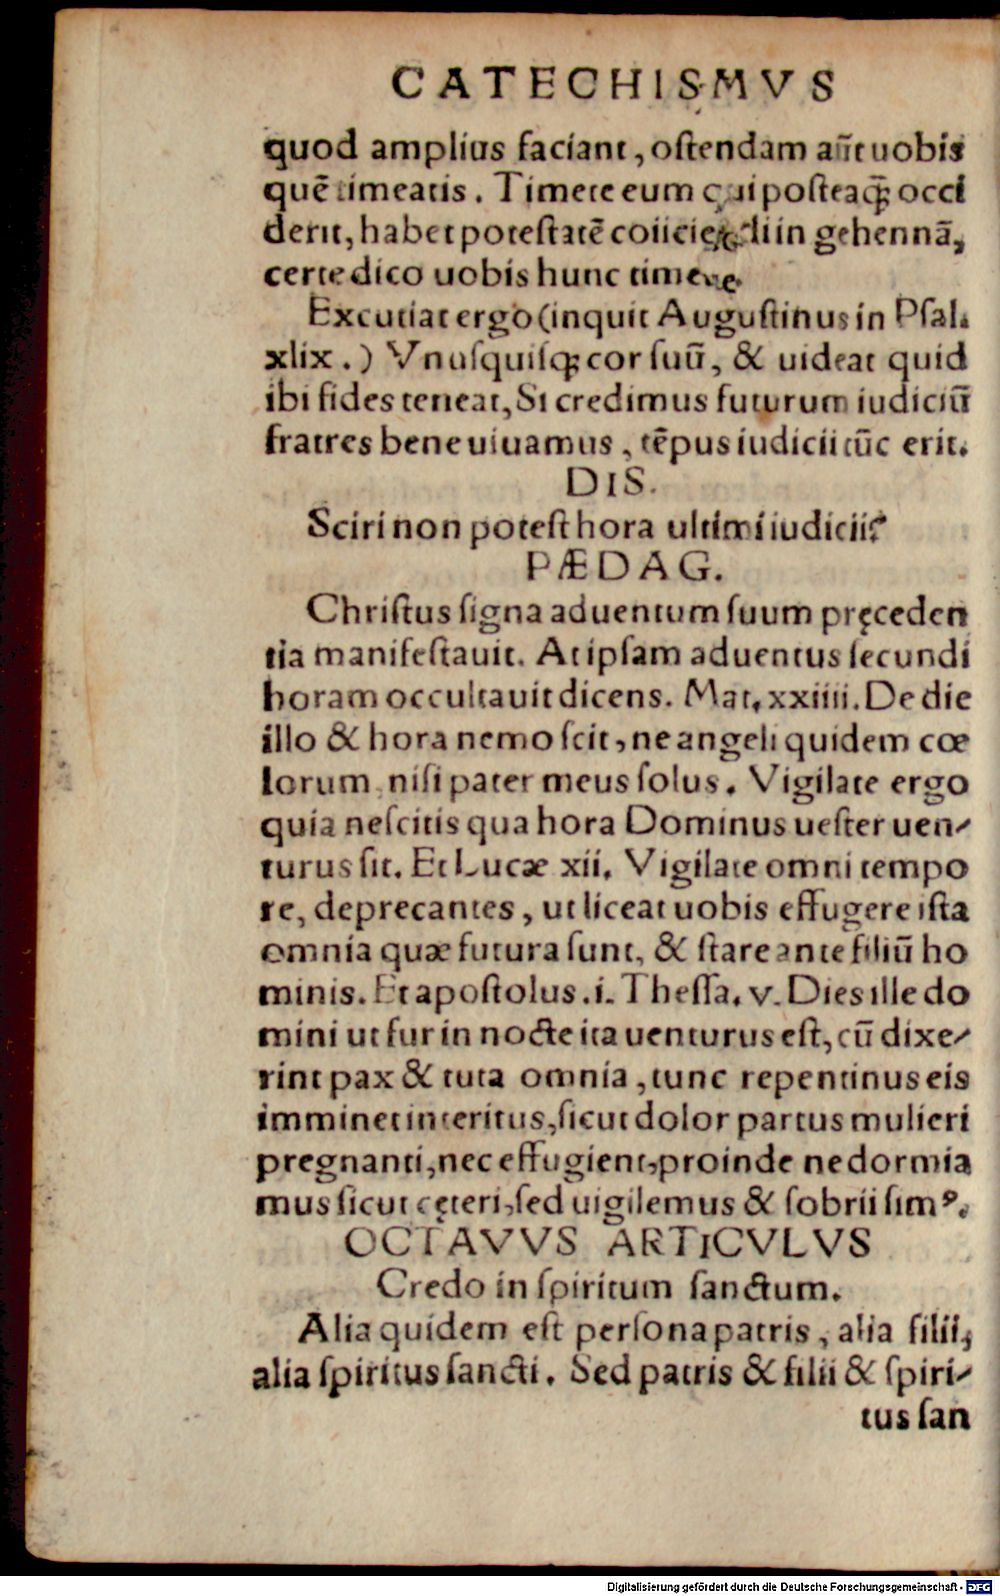 CATECHISMVS
quod amplius faciant, ostendam aūt uobis
quē timeatis. Timete eum qui posteaꝗ̃ occi
derit, habet potestatē coiiciendi in gehennā,
certe dico uobis hunc timete.
Excutiat ergo (inquit Augustinus in Psal.
xlix.) Vnusquisqꝫ cor suū, & uideat quid
ibi fides teneat, Si credimus futurum iudiciū
fratres bene uiuamus, tēpus iudicii tūc erit.
DIS.
Sciri non potest hora ultimi iudicii?
PÆDAG.
Christus signa aduentum suum pręceden
tia manifestauit. At ipsam aduentus secundi
horam occultauit dicens. Mat. xxiiii. De die
illo & hora nemo scit, ne angeli quidem cœ
lorum nisi pater meus solus. Vigilate ergo
quia nescitis qua hora Dominus uester uen-
turus sit. Et Lucæ xii. Vigilate omni tempo
re, deprecantes, ut liceat uobis effugere ista
omnia quæ futura sunt, & stare ante filiū ho
minis. Et apostolus .i. Thessa. v. Dies ille do
mini ut fur in nocte ita uenturus est, cū dixe-
rint pax & tuta omnia, tunc repentinus eis
imminet interitus, sicut dolor partus mulieri
pregnanti, nec effugient, proinde ne dormia
mus sicut cęteri, sed uigilemus & sobrii simꝰ.
OCTAVVS ARTICVLVS
Credo in spiritum sanctum.
Alia quidem est persona patris, alia filii,
alia spiritus sancti. Sed patris & filii & spiri-
tus san
Digitalisierung gefördert durch die Deutsche Forschungsgemeinschaft - DFG